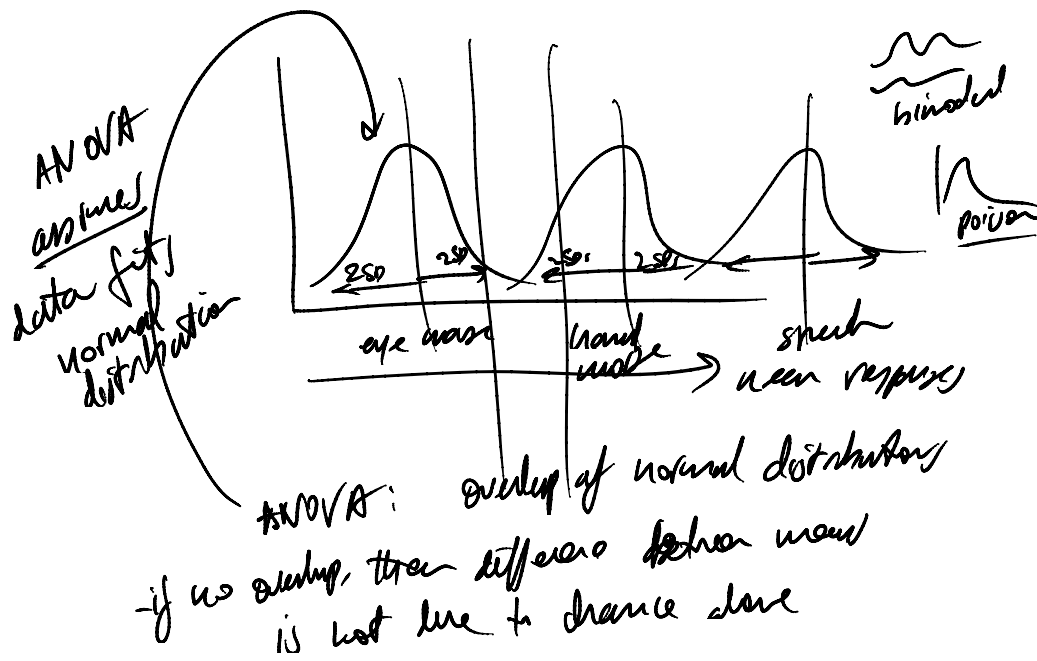 bimodal
ANOVA
assumes
data fits
normal
distribution
poisson
2SD 2SD 2SD 2SD
eye mouse hand mouse speech
mean responses
ANOVA: overlap of normal distributions
- if no overlap, then difference between means
is not due to chance alone